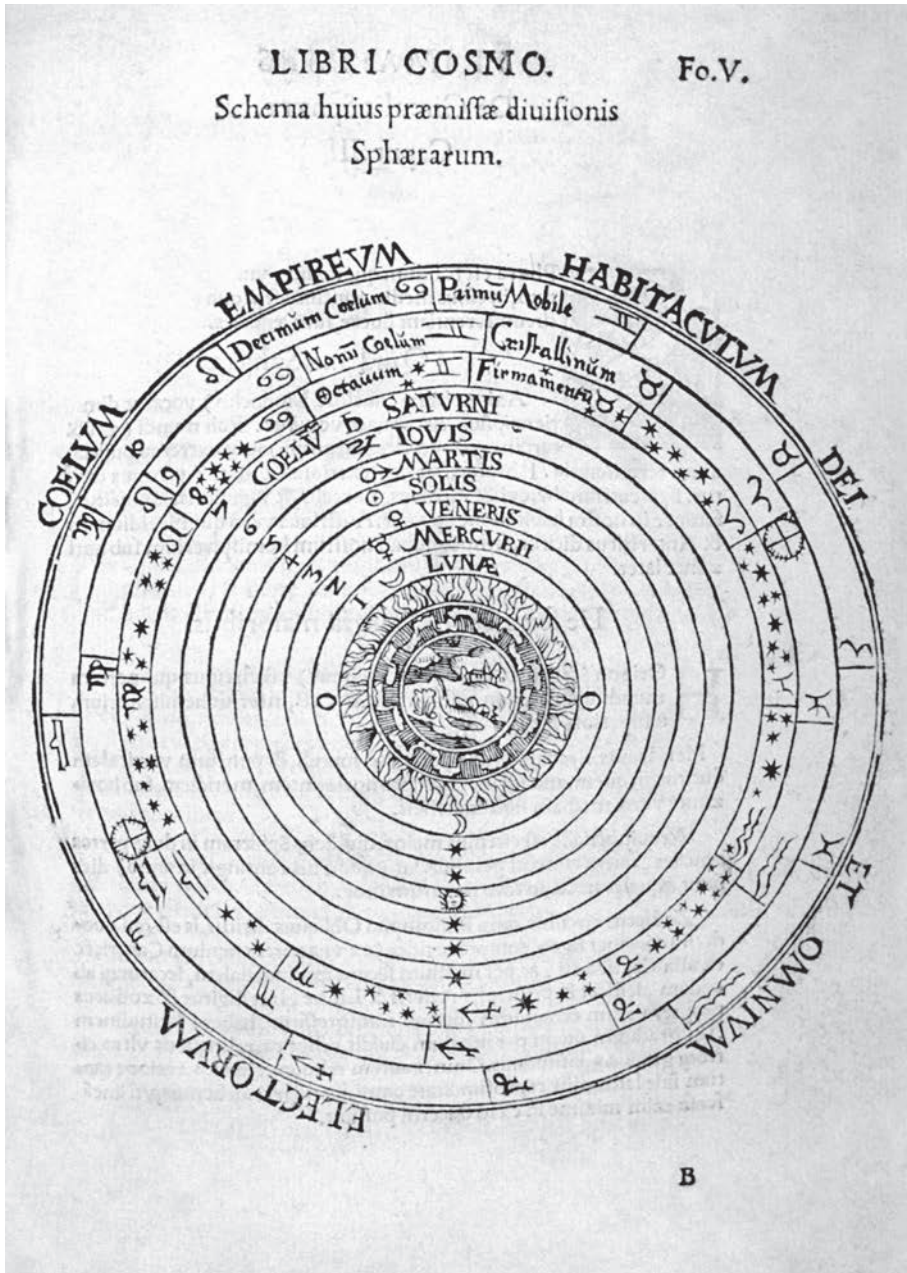 LIBRI COSMO. Fo.V.
Schema huius præmissæ diuisionis
Sphærarum.
COELVM EMPIREVM HABITACVLVM DEI ET OMNIVM ELECTORVM
10 Decimum Coelum Primũ Mobile
9 Nonũ Coelum Cristallinum
8 Octauum Firmamentũ
7 COELV SATVRNI
6 IOVIS
5 MARTIS
4 SOLIS
3 VENERIS
2 MERCVRII
1 LVNÆ
B